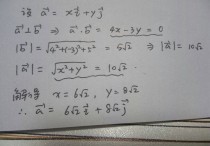 设 a⃗ = xi⃗ + yj⃗
a⃗⊥b⃗ ⇒ a⃗·b⃗ = 4x-3y = 0
|b⃗| = √(4²+(-3)²+5²) = 5√2 ⇒ |a⃗| = 10√2
|a⃗| = √(x²+y²) = 10√2
解得 x = 6√2, y = 8√2
∴ a⃗ = 6√2 i⃗ + 8√2 j⃗